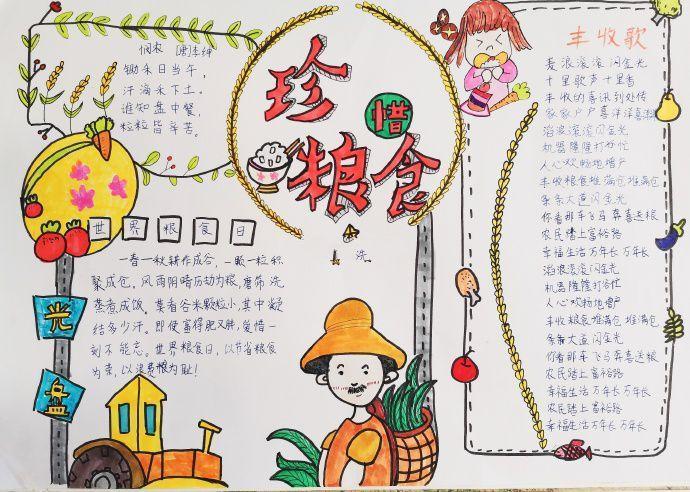 悯农 [唐]李绅
锄禾日当午,
汗滴禾下土。
谁知盘中餐,
粒粒皆辛苦。
珍惜粮食
世界粮食日
一春一秋耕作成谷,一颗一粒积
聚成仓。风雨阴晴历劫为粮,磨筛洗
蒸煮成饭。莫看谷米颗粒小,其中
结多少汗。即使富得肥又胖,爱惜一
刻不能忘。世界粮食日,以节省粮食
为荣,以浪费粮为耻!
光盘
洗
丰收歌
麦浪滚滚闪金光
十里歌声十里香
丰收的喜讯到处传
家家户户喜洋洋喜洋
滔浪滚滚闪金光
机器隆隆打谷忙
人心欢畅地增产
丰收粮食堆满仓堆满仓
条条大道闪金光
你看那车飞马奔喜送粮
农民踏上富裕路
幸福生活万年长万年长
滔浪滚滚闪金光
机器隆隆打谷忙
人心欢畅地增产
丰收粮食堆满仓堆满仓
条条大道闪金光
你看那车飞马奔喜送粮
农民踏上富裕路
幸福生活万年长万年长
农民踏上富裕路
幸福生活万年长万年长